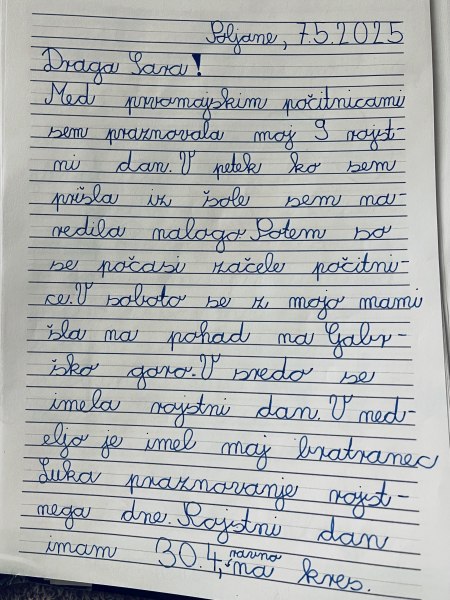 Poljane, 7.5.2025
Draga Sara!
Med prvomajskim počitnicami
sem praznovala moj 9 rojst-
ni dan. V petek ko sem
prišla iz šole sem na-
redila nalogo. Potem so
se počasi začele počitni-
ce. V soboto se z mojo mami
šla na pohod na Gabr-
ško goro. V sredo se
imela rojstni dan. V ned-
eljo je imel moj bratranec
Luka praznovanje rojst-
nega dne. Rojstni dan
imam 30.4, ravno na kres.